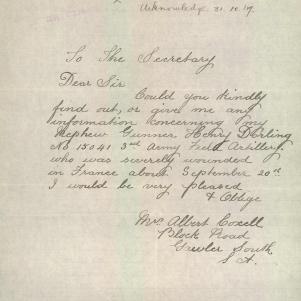 Acknowledge 31.10.17.
To The Secretary
Dear Sir
Could you kindly
find out, or give me any
information concerning my
Nephew Gunner Henry Dörling
No 15041 3rd Army Field Artillery
who was severely wounded
in France about September 20th
I would be very pleased
& Oblige
Mrs Albert Coxell
Block Road
Gawler South
S A.